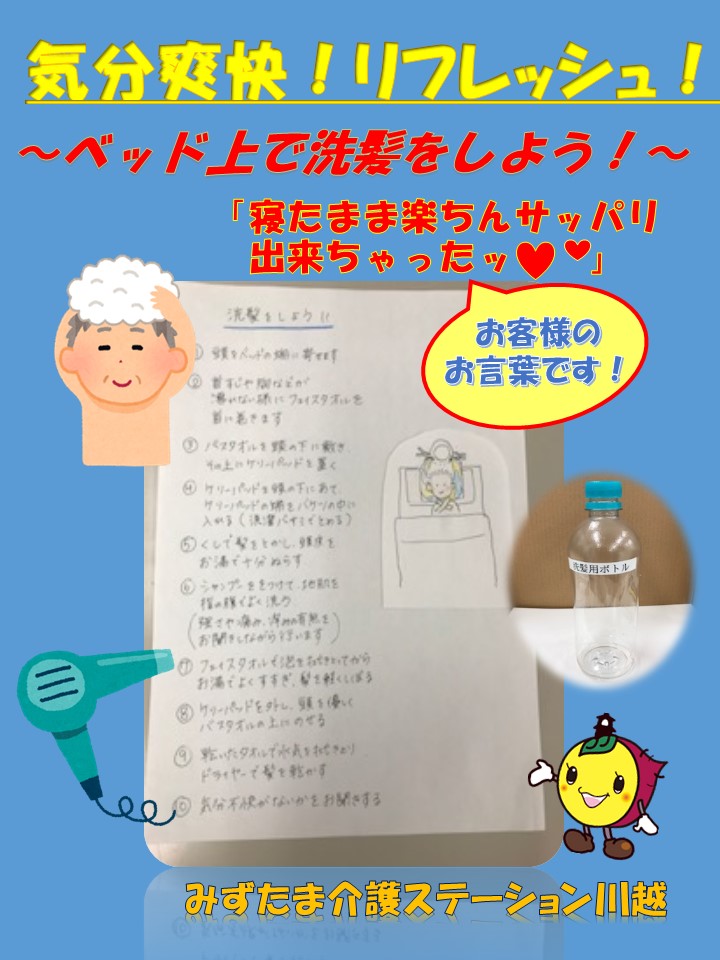 気分爽快！リフレッシュ！
～ベッド上で洗髪をしよう！～
「寝たまま楽ちんサッパリ
出来ちゃったッ♥❤」
お客様の
お言葉です！
洗髪をしよう!!
① 頭をベッドの端に寄せます
② 首すじや胸などが
濡れない様にフェイスタオルを
首に巻きます
③ バスタオルを頭の下に敷き、
その上にケリーパッドを置く
④ ケリーパッドを頭の下にあて、
ケリーパッドの端をバケツの中に
入れる（洗濯バサミでとめる）
⑤ くしで髪をとかし、頭皮を
お湯で十分ぬらす
⑥ シャンプーをつけて、地肌を
指の腹でよく洗う
（強さや痛み、痒みの有無を
お聞きしながら行います）
⑦ フェイスタオルで泡をふきとってから
お湯でよくすすぎ、髪を軽くしぼる
⑧ ケリーパッドを外し、頭を優しく
バスタオルの上にのせる
⑨ 乾いたタオルで水気をふきとり
ドライヤーで髪を乾かす
⑩ 気分不快がないかをお聞きする
洗髪用ボトル
みずたま介護ステーション川越